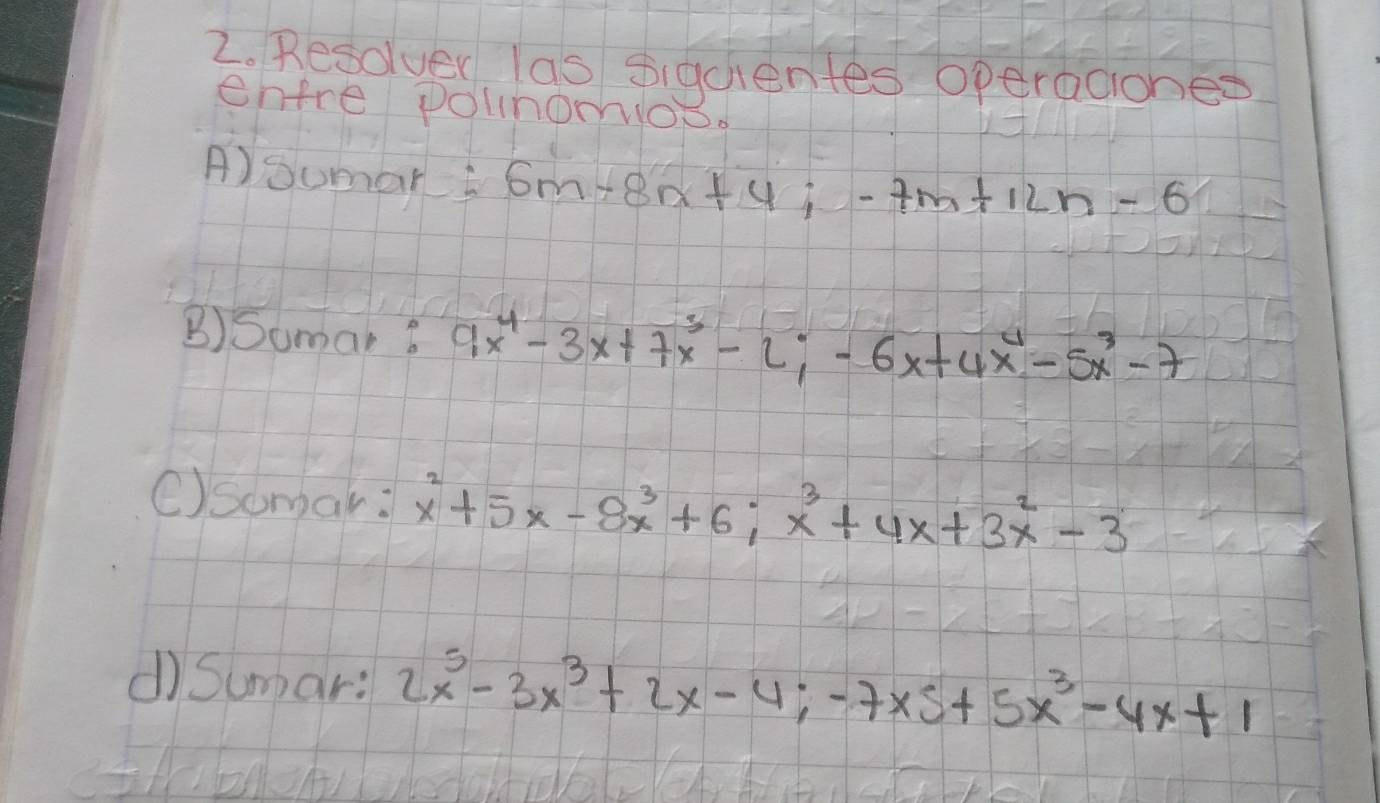 2. Resolver las siguientes operaciones
entre polinomios.
A) Sumar: 6m-8n+4; -7m+12n-6
B) Sumar: 9x⁴-3x+7x³-2; -6x+4x⁴-5x³-7
C) sumar: x²+5x-8x³+6; x³+4x+3x²-3
d) Sumar: 2x⁵-3x³+2x-4; -7x5+5x³-4x+1